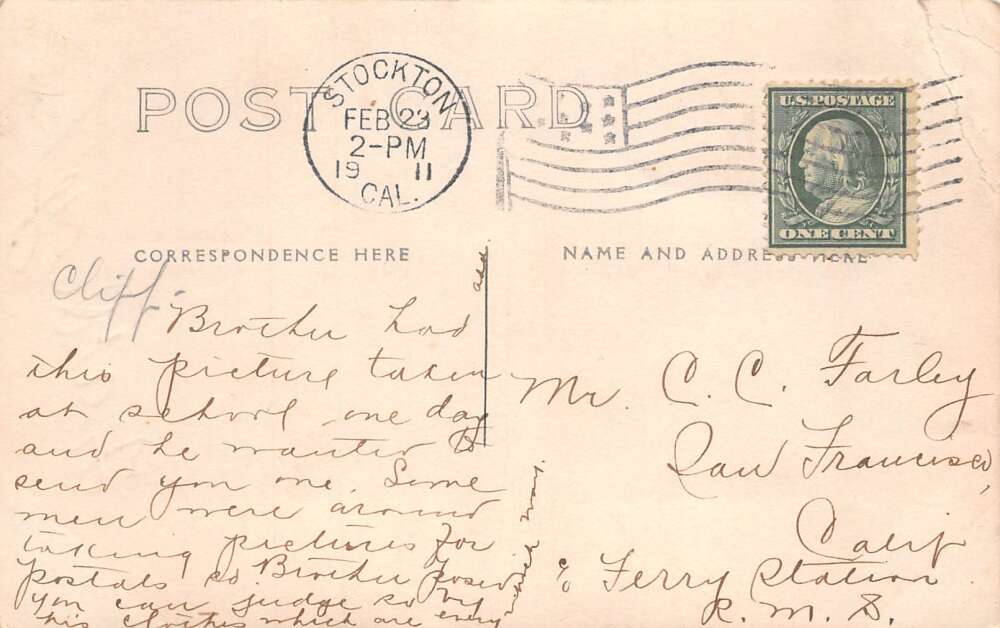 POST CARD
STOCKTON
FEB 23
2-PM
19 11
CAL.
U.S. POSTAGE
ONE CENT
CORRESPONDENCE HERE
NAME AND ADDRESS HERE
Cliff-
Brother had
this picture taken
at school one day
and he wanted to
send you one. Some
men were around
taking pictures for
postals so Brother posed
you can judge so by
his clothes which are every
which way.
Mr. C. C. Farley
San Francisco,
Calif
c/o Ferry Station
R. M. S.